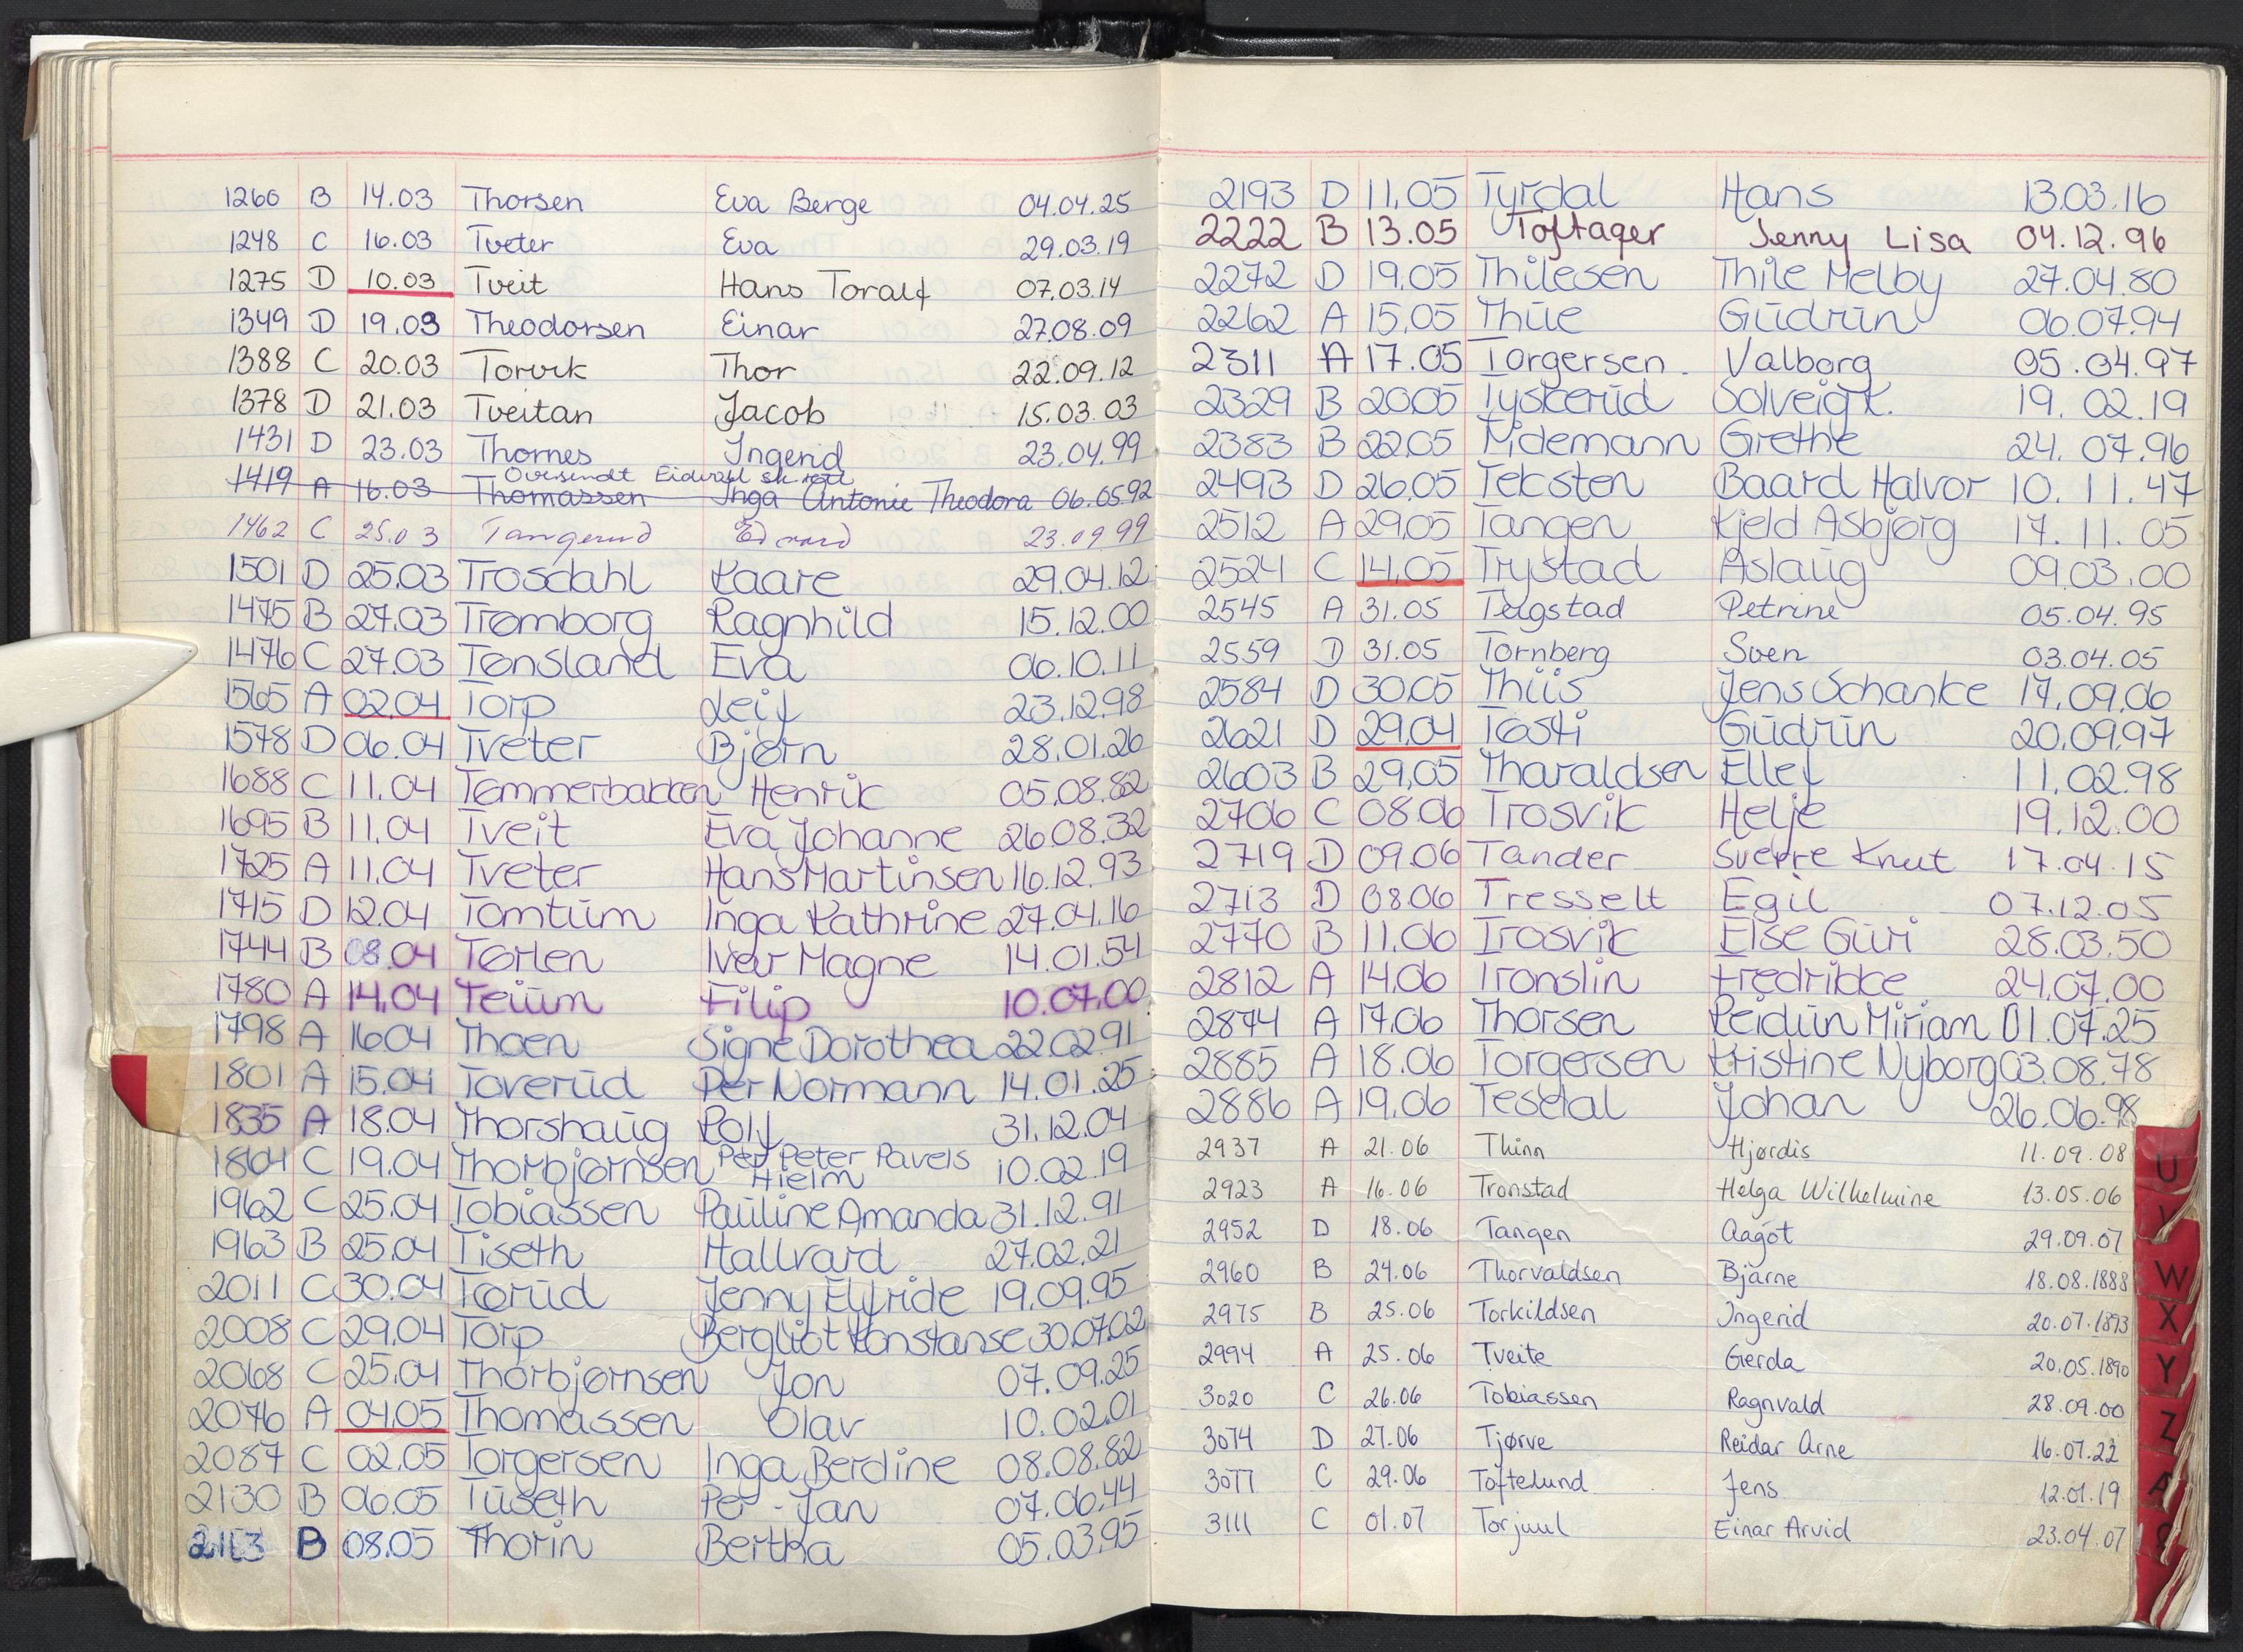 1260 B 14.03 Thorsen Eva Berge 04.04.25
1248 C 16.03 Tveter Eva 29.03.19
1275 D 10.03 Tveit Hans Toralf 07.03.14
1349 D 19.03 Theodorsen Einar 27.08.09
1388 C 20.03 Torvik Thor 22.09.12
1378 D 21.03 Tveitan Jacob 15.03.03
1431 D 23.03 Thornes Ingerid 23.04.99
Oversendt Eidvoll sk.rett
1419 A 16.03 Thomassen Inga Antonie Theodora 06.05.92
1462 C 25.03 Tangerud Edvard 23.09.99
1501 D 25.03 Trosdahl Kaare 29.04.12
1475 B 27.03 Trømborg Ragnhild 15.12.00
1476 C 27.03 Tønsland Eva 06.10.11
1565 A 02.04 Torp Leif 23.12.98
1578 D 06.04 Tveter Bjørn 28.01.26
1688 C 11.04 Tømmerbakken Henrik 05.08.82
1695 B 11.04 Tveit Eva Johanne 26.08.32
1725 A 11.04 Tveter Hans Martinsen 16.12.93
1715 D 12.04 Tomtum Inga Kathrine 27.04.16
1744 B 08.04 Torlen Iver Magne 14.01.54
1780 A 14.04 Teium Filip 10.07.00
1798 A 16.04 Thoen Signe Dorothea 22.02.91
1801 A 15.04 Toverud Per Normann 14.01.25
1835 A 18.04 Thorshaug Rolf 31.12.04
1864 C 19.04 Thorbjørnsen Per Peter Pavels Hielm 10.02.19
1962 C 25.04 Tobiassen Pauline Amanda 31.12.91
1963 B 25.04 Tiseth Hallvard 27.02.21
2011 C 30.04 Torud Jenny Elfride 19.09.95
2008 C 29.04 Torp Bergliot Konstanse 30.07.02
2068 C 25.04 Thorbjørnsen Jon 07.09.25
2076 A 04.05 Thomassen Olav 10.02.01
2087 C 02.05 Torgersen Inga Berdine 08.08.82
2130 B 06.05 Tuseth Per-Jan 07.06.44
2113 B 08.05 Thorin Bertha 05.03.95
2193 D 11.05 Tyrdal Hans 13.03.16
2222 B 13.05 Toftager Jenny Lisa 04.12.96
2272 D 19.05 Thilesen Thile Melby 27.04.80
2262 A 15.05 Thue Gudrun 06.07.94
2311 A 17.05 Torgersen Valborg 05.04.97
2329 B 20.05 Tyskerud Solveig K. 19.02.19
2383 B 22.05 Tidemann Grethe 24.07.96
2493 D 26.05 Teksten Baard Halvor 10.11.47
2512 A 29.05 Tangen Kjeld Asbjørg 17.11.05
2524 C 14.05 Trystad Aslaug 09.03.00
2545 A 31.05 Tegstad Petrine 05.04.95
2559 D 31.05 Tornberg Sven 03.04.05
2584 D 30.05 Thiis Jens Schanke 17.09.06
2621 D 29.04 Tosti Gudrun 20.09.97
2603 B 29.05 Tharaldsen Ellef 11.02.98
2706 C 08.06 Trosvik Helje 19.12.00
2719 D 09.06 Tander Sverre Knut 17.04.15
2713 D 08.06 Tresselt Egil 07.12.05
2770 B 11.06 Trosvik Else Guri 28.03.50
2812 A 14.06 Tronslin Fredrikke 24.07.00
2874 A 17.06 Thorsen Reidun Miriam 01.07.25
2885 A 18.06 Torgersen Kristine Nyborg 03.08.78
2886 A 19.06 Tesdal Johan 26.06.98
2937 A 21.06 Thinn Hjørdis 11.09.08
2923 A 16.06 Tronstad Helga Wilhelmine 13.05.06
2952 D 18.06 Tangen Aagot 29.09.07
2960 B 24.06 Thorvaldsen Bjarne 18.08.1888
2975 B 25.06 Torkildsen Ingerid 20.07.1893
2994 A 25.06 Tveite Gerda 20.05.1890
3020 C 26.06 Tobiassen Ragnvald 28.09.00
3074 D 27.06 Tjørve Reidar Arne 16.07.22
3077 C 29.06 Toftelund Jens 12.01.19
3111 C 01.07 Torjuul Einar Arvid 23.04.07
U
V
W
X
Y
Z